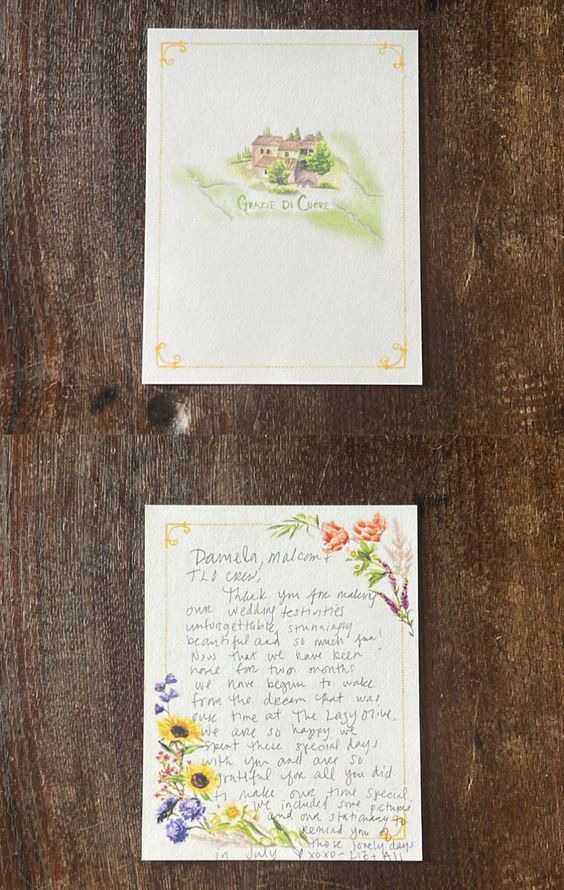 GRAZIE DI CUORE
Daniela, Malcom +
TLO CREW,
Thank you for making
our wedding festivities
unforgettable, stunningly
beautiful and so much fun!
Now that we have been
home for two months
we have begun to wake
from the dream that was
our time at The Lazy Olive.
We are so happy we
spent these special days
with you and are so
grateful for all you did
to make our time special
we included some pictures
and our stationary to
remind you of
those lovely days
in July
XOXO - Liz + Ali